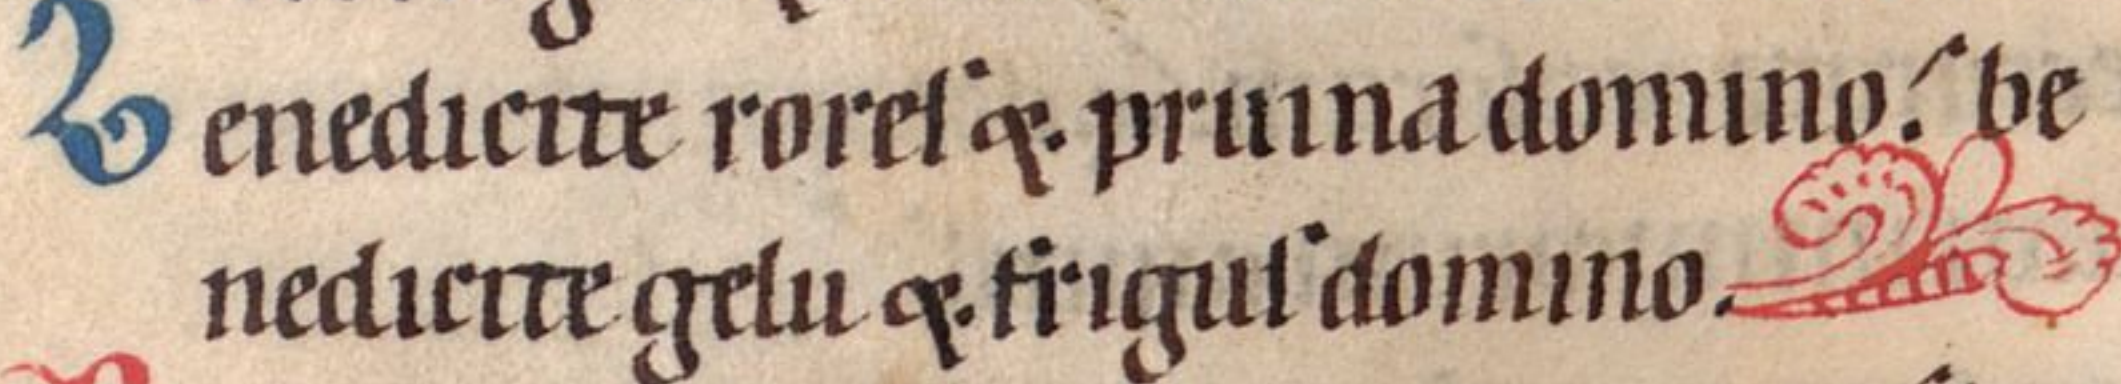 Benedicite roreſ ꝙ pruina domino. be
nedicite gelu ꝙ friguſ domino.